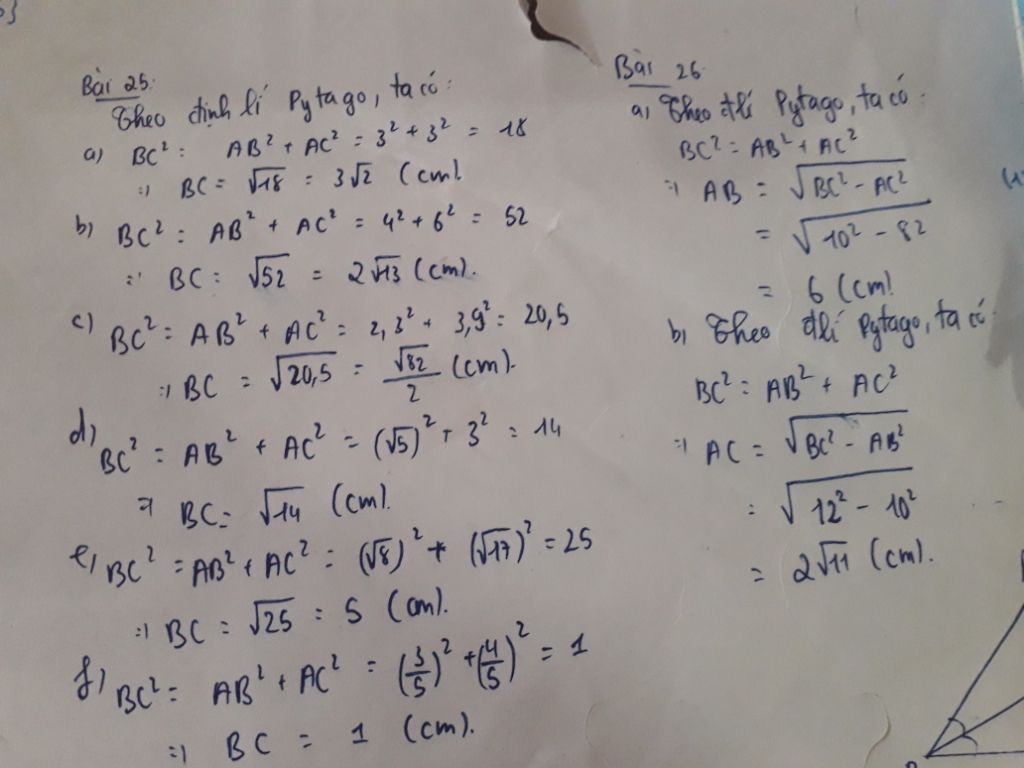 Bài 25:
Theo định lí Pytago, ta có:
a) BC² = AB² + AC² = 3² + 3² = 18
=> BC = √18 = 3√2 (cm)
b) BC² = AB² + AC² = 4² + 6² = 52
=> BC = √52 = 2√13 (cm).
c) BC² = AB² + AC² = 2,3² + 3,9² = 20,5
=> BC = √20,5 = √82/2 (cm).
d) BC² = AB² + AC² = (√5)² + 3² = 14
=> BC = √14 (cm).
e) BC² = AB² + AC² = (√8)² + (√17)² = 25
=> BC = √25 = 5 (cm).
f) BC² = AB² + AC² = (3/5)² + (4/5)² = 1
=> BC = 1 (cm).
Bài 26
a) Theo đlí Pytago, ta có:
BC² = AB² + AC²
=> AB = √BC² - AC²
= √10² - 82
= 6 (cm)
b) Theo đlí Pytago, ta có:
BC² = AB² + AC²
=> AC = √BC² - AB²
= √12² - 10²
= 2√11 (cm).